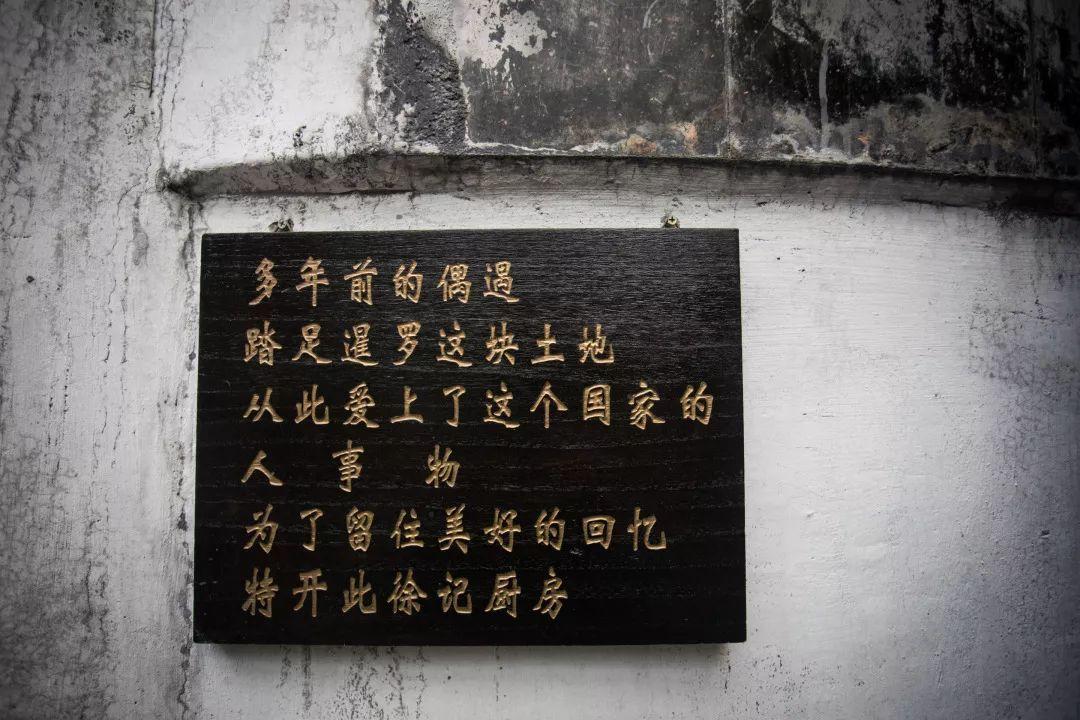 多年前的偶遇
踏足暹罗这块土地
从此爱上了这个国家的
人 事 物
为了留住美好的回忆
特开此徐记厨房